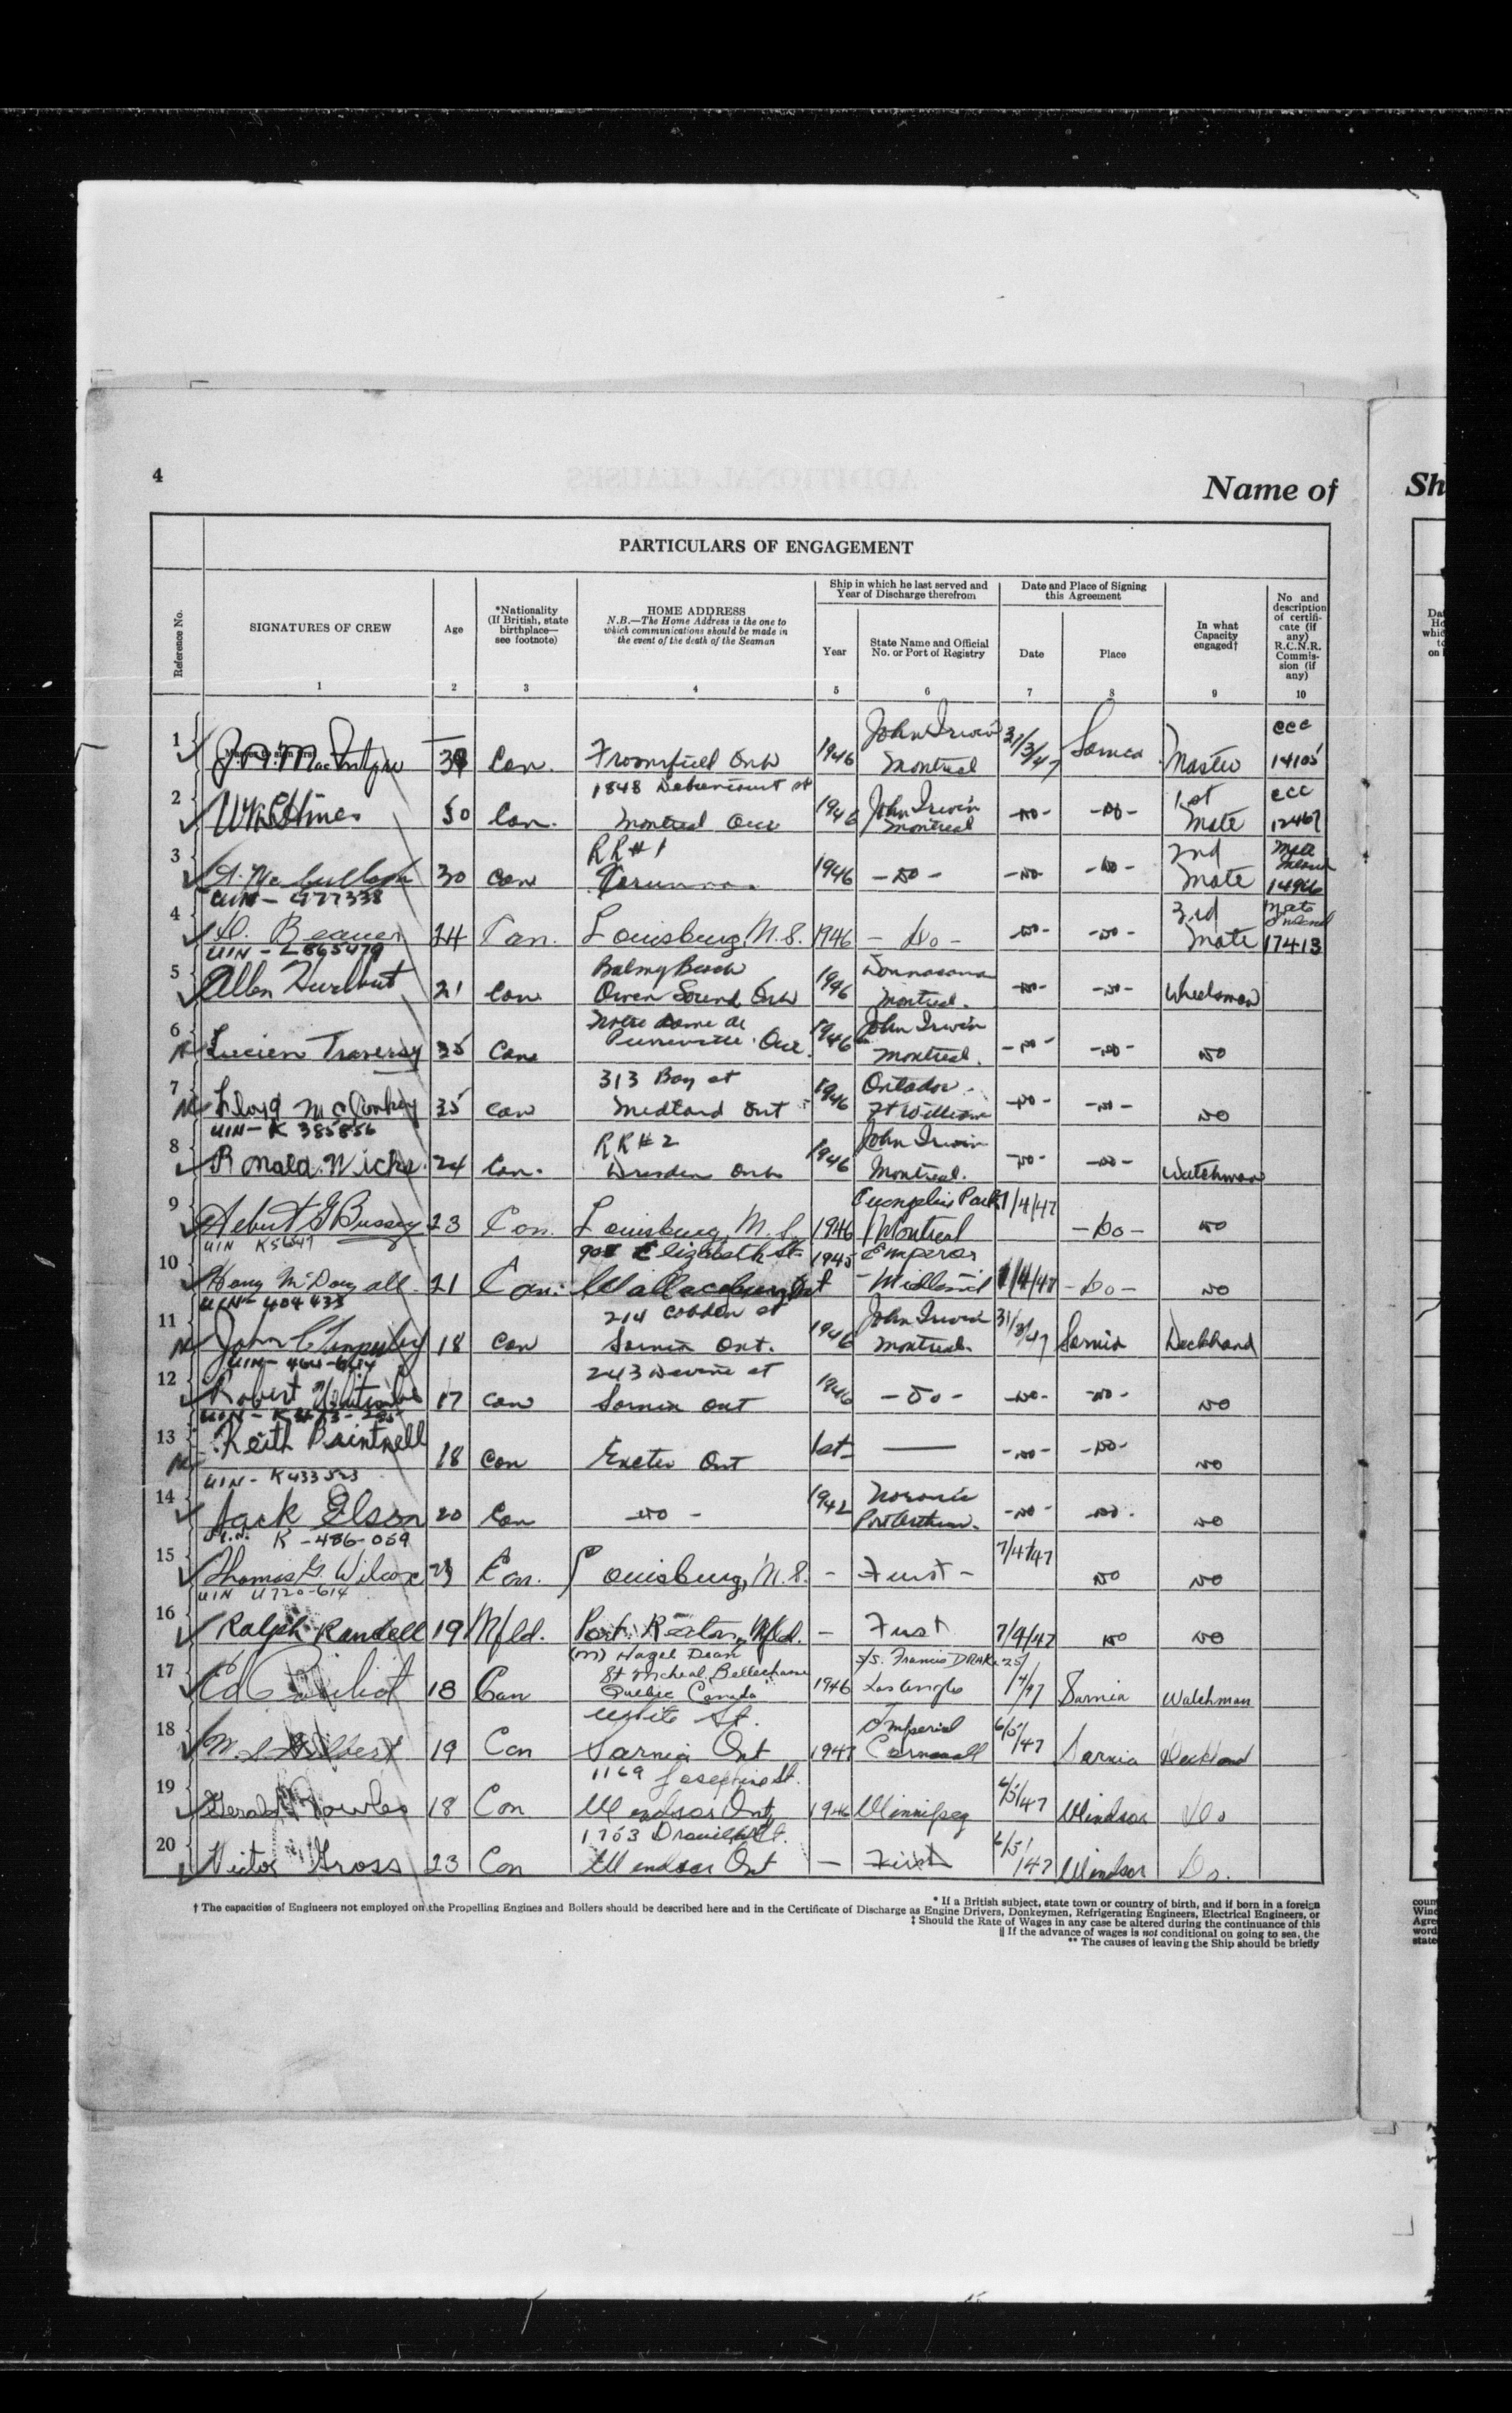 4
Name of
Sh
PARTICULARS OF ENGAGEMENT
Reference No.
SIGNATURES OF CREW
Age
*Nationality (If British, state birthplace— see footnote)
HOME ADDRESS
N.B.—The Home Address is the one to which communications should be made in the event of the death of the Seaman
Ship in which he last served and Year of Discharge therefrom
Year
State Name and Official No. or Port of Registry
Date and Place of Signing this Agreement
Date
Place
In what Capacity engaged†
No and description of certificate (if any) R.C.N.R. Commission (if any)
1 2 3 4 5 6 7 8 9 10
1 39 Can. Froomfield Ont 1946 John Irwin Montreal 31/3/47 Sarnia Master CCC 14105
2 50 Can. 1848 st Montreal Que 1946 John Irwin Montreal -Do- -Do- 1st Mate CCC 12467
3 30 Can RR#1 Corunna 1946 -Do- -Do- -Do- 2nd Mate 14966
UIN - 477338
4 D. Beaver 24 Can. Louisburg, N.S. 1946 - Do - -Do- -Do- 3rd Mate Mate Inland 17413
UIN - L865479
5 Allen Hurlbut 21 Can Balmy Beach Owen Sound Ont 1946 Donnacona Montreal. -Do- -Do- Wheelsman
6 Lucien Traversy 35 Can Notre Dame de Que. 1946 John Irwin Montreal. -Do- -Do- Do
7 Lloyd McConkey 35 Can 313 Bay st Midland Ont 1946 Ontadoc Ft William -Do- -Do- Do
UIN - K 385856
8 Ronald Wicks 24 Can. RR#2 Dresden Ont 1946 John Irwin Montreal. -Do- -Do- Watchman
9 G Bussey 23 Can. Louisburg, N.S. 1946 Park Montreal 1/4/47 -Do- Do
UIN K5647
10 McDougall 21 Can. 908 Elizabeth St. Wallaceburg Ont 1945 Emperor - Midland 1/4/47 -Do- Do
UIN - 404433
11 John 18 Can 214 Cobden st Sarnia Ont. 1946 John Irwin Montreal. 31/3/47 Sarnia Deckhand
UIN - 464-614
12 Robert 17 Can 243 Devine st Sarnia Ont 1946 - Do - -Do- -Do- Do
13 Keith Paintnell 18 Can Exeter Ont 1st — -Do- -Do- Do
UIN - K433523
14 Jack Elson 20 Can Do - 1942 Noronic Port Arthur. -Do- -Do- Do
K -486-059
15 Thomas G. Wilcox 23 Can. Louisburg, N.S. - First - 7/4/47 Do Do
UIN U720-614
16 Ralph Randell 19 Nfld. Port Rexton, Nfld. - First 7/4/47 Do Do
17 Ed 18 Can (M) Hazel Dean St Micheal Bellechasse Quebec Canada 1946 S/S. Francis DRAKE Los Angles 25/4/47 Sarnia Watchman
18 19 Can White St. Sarnia Ont 1947 Imperial Cornwall 6/5/47 Sarnia Deckhand
19 Gerald Rowles 18 Can 1169 Josephine St. Windsor Ont, 1946 Winnipeg 6/5/47 Windsor Do
20 Victor Gross 23 Can 1763 Drouillard St. Windsor Ont — First 6/5/47 Windsor Do.
* If a British subject, state town or country of birth, and if born in a foreign
† The capacities of Engineers not employed on the Propelling Engines and Boilers should be described here and in the Certificate of Discharge as Engine Drivers, Donkeymen, Refrigerating Engineers, Electrical Engineers, or
‡ Should the Rate of Wages in any case be altered during the continuance of this
|| If the advance of wages is not conditional on going to sea, the
** The causes of leaving the Ship should be briefly